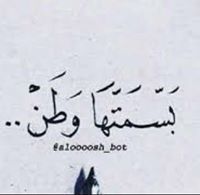 بَسّمَتّهَا وَطَنْ ..
@aloooosh_bot